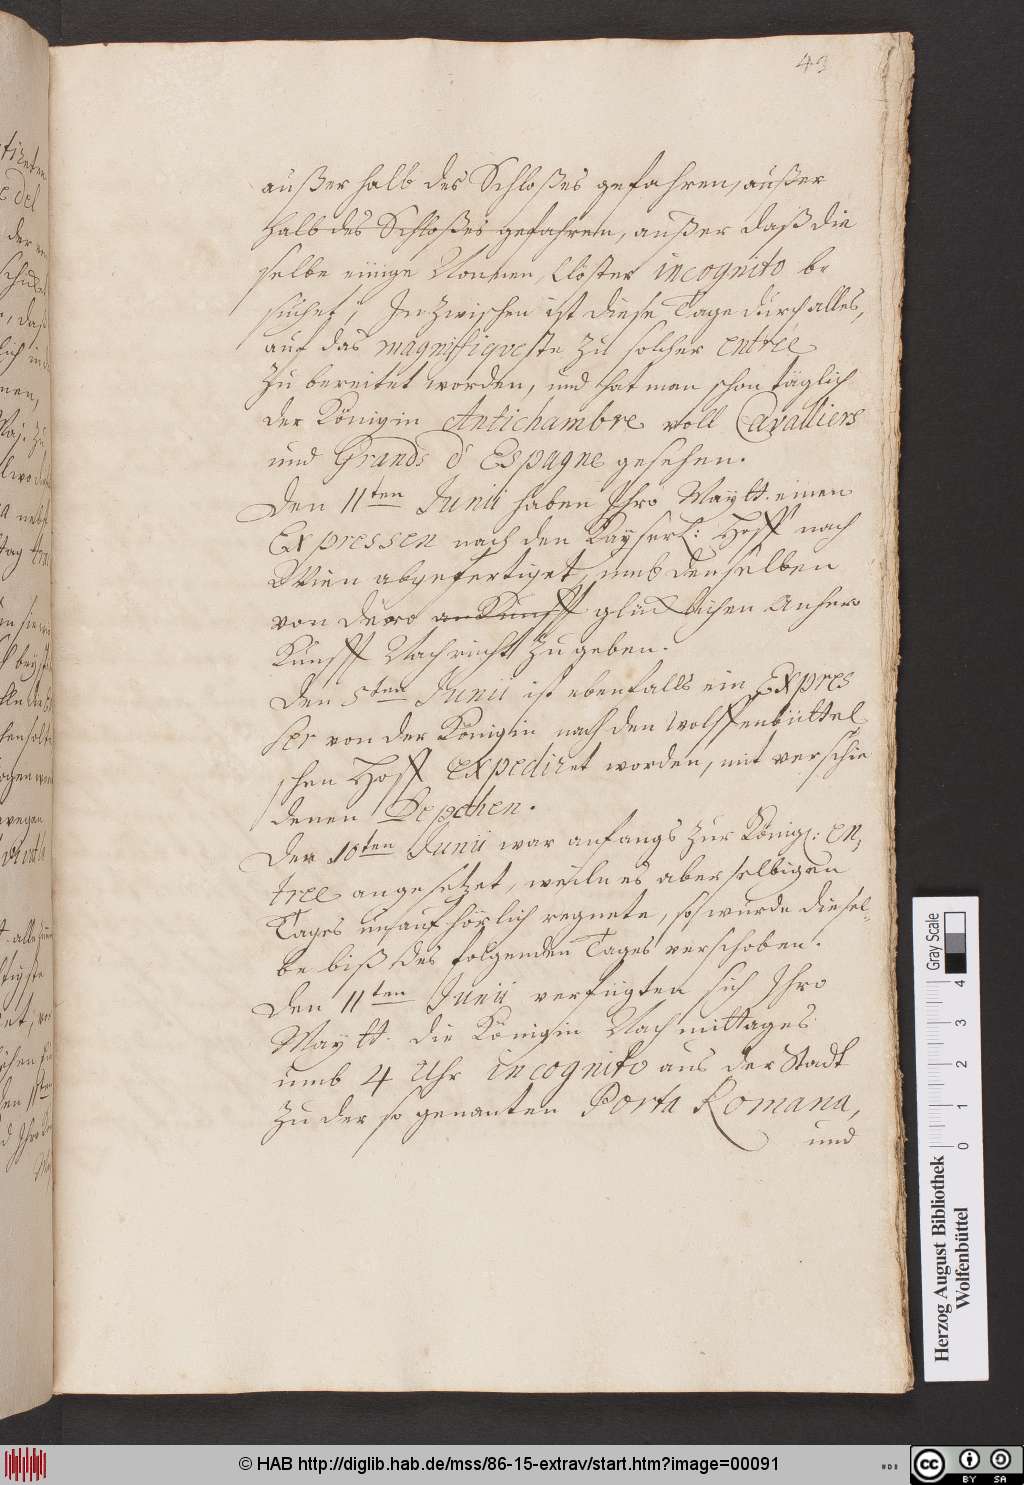 43
außerhalb des Schloßes gefahren, außer
halb des Schloßes gefahren, außer daß die
selbe einige Nonnen Clöster incognito be
suchet; Inzwischen ist diese Tage durch alles,
auf das magnifiqveste zu solcher entrée
zu bereitet worden, und hat man schon täglich
der Königin Antichambre voll Cavalliers
und Grands d'Espagne gesehen.
Den 11ten Junii haben Ihro Maytt. einen
Expressen nach den Kayserl: Hoff nach
Wien abgefertiget, umb denselben
von dero ankunfft glücklichen Anhero
Kunfft Nachricht zu geben.
Den 5ten Junii ist ebenfalls ein Expres
ser von der Königin nach den Wolffenbüttel
schen Hoff expediret worden, mit verschie
denen Depchen.
Der 10ten Junii war anfangs zur Königl: en,
tree angesetzet, weiln es aber selbigen
Tages unaufhörlich regnete, so wurde diesel-
be biß des folgenden Tages verschoben.
Den 11ten Junii verfügten sich Ihro
Maytt. die Königin Nachmittages
umb 4 Uhr incognito aus der Stadt
zu der so genanten Porta Romana,
und
Herzog August Bibliothek
Wolfenbüttel
0 1 2 3 4
Gray Scale
© HAB http://diglib.hab.de/mss/86-15-extrav/start.htm?image=00091
cc BY SA